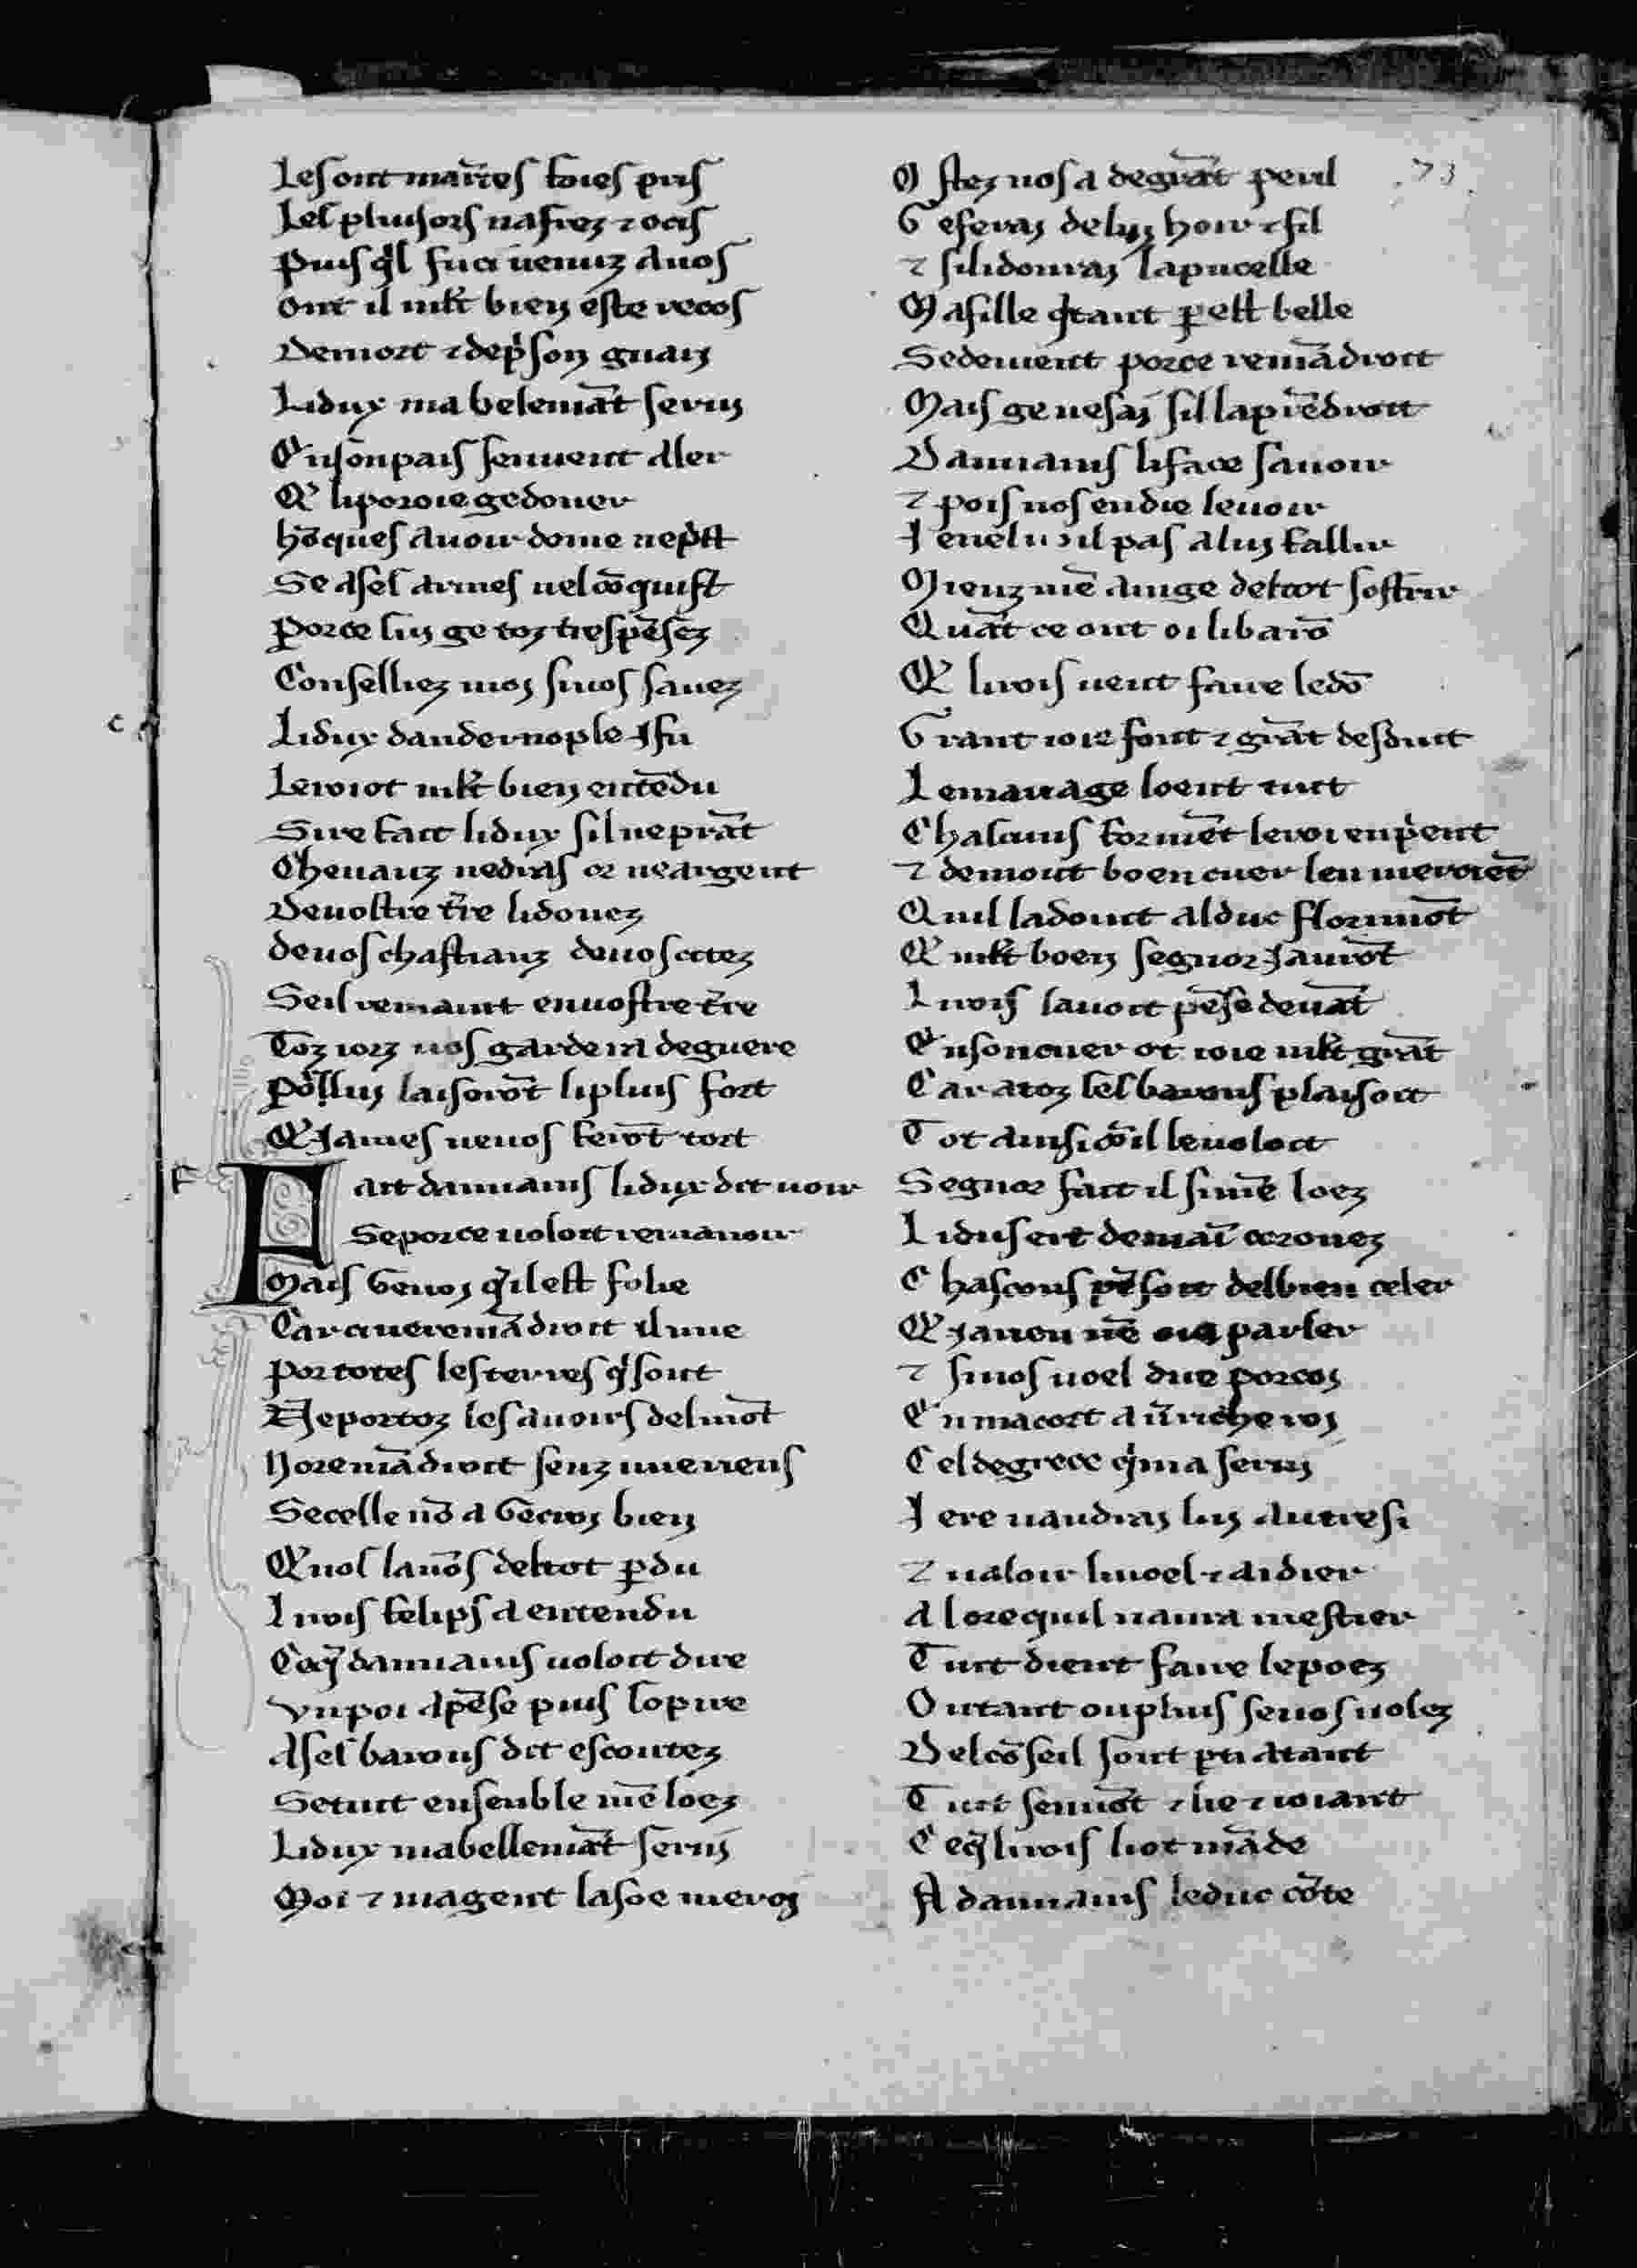 73
Les ont maītes foies pris
Les plusors nafrez ⁊ ocis
Puis q̾l fuci uenuz a uos
Ont il ml̄t bien este recos
De mort ⁊ de p̾son guari
Li dux ma belemāt serui
En son pais sen uent aler
Que li poroie ge doner
Hōques auoir dome ne p̾st
Se a ses armes nel cōquist
Por ce sui ge toz trespēsez
Conselliez moi si uos sauez
Li dux dandernople i fu
Le roi ot ml̄t bien entēdu
Sire fait li dux sil ne prāt
Cheuauz ne dras or ne argent
De uostre t̄re li donez
de uos chastiauz de uos citez
Se il remaint en uostre t̄re
Toz iorz uos gardera de guere
Por lui laisorōt li pluis fort
Que iames ne uos ferōt tort
F
Fait damians li dux dit uoir
Se por ce uoloit remanoir
Mais ge uoi q̾l est folie
Car ci ne remādroit il mie
Por totes les terres q̾ sont
Ne por toz les auoirs del mōt
No remādroit senz une riens
Se celle nō a ge croi bien
Que nos lauōs del tot ꝑdu
Li rois felips a entendu
Ce q̄ damians uoloit dire
Vn poi a pēse puis sopire
A ses barons dit escoutez
Se tuit ensenble mē loez
Li dux ma bellemāt serui
Moi ⁊ ma gent la soe merci
Ostez nos a de grāt peril
Ge ferai de lui hoir ⁊ fil
⁊ si li donrai la pucelle
Ma fille q̾ tant ꝑ est belle
Se dement por ce remādroit
Mais ge ne sai sil la prēdroit
Damians li face sauoir
⁊ pois nos en die le uoir
Ie nel uoil pas a lui fallir
Mienz mē aing ge del tot sosfrir
Quāt ce ont oi li barō
Que li rois uent faire le dō
Grant ioie font ⁊ grāt desduit
Le mariage loent tuit
Chascuns formēt le roi en p̾ent
⁊ de mout boen cuer len mercient
Quil la donit al duc florimōt
Que ml̄t boen segnor i aurōt
Li rois lauoit pēse deuāt
En son cuer ot ioie ml̄t grāt
Car a toz les barons plaisoit
Tot ainsi cō il le uoloit
Segnor fait il si mē loez
Li dus ert demaī coronez
Chascons pēsoit del bien celer
Que ia nou nē oie parler
⁊ si uos uoel dire por coi
En ma cort a ū riche roi
Cel de grece q̾ ma serui
Ie re uaudrai lui autresi
⁊ ualoir li uoel ⁊ aidier
A lore quil naura mestier
Tuit dient faire le poez
Ou tant ou plus se uos uolez
Del cōseil sont ꝑti atant
Tuit sen uōt ⁊ lie ⁊ ioiant
Ce q̄ li rois li ot māde
A damians le duc cōte